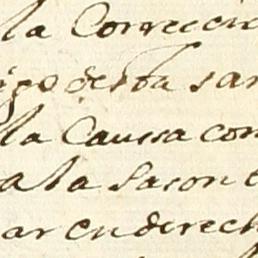 la Correcci
desta san
la Caussa con
a la Sason
ar en derech